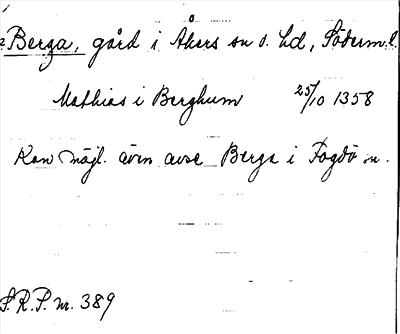 Berga, gård i Åkers sn o. hd, Söderm. l.
Mathias i Berghum 25/10 1358
Kan möjl. även avse Berga i Fogdö sn.
S.R.P. nr. 389